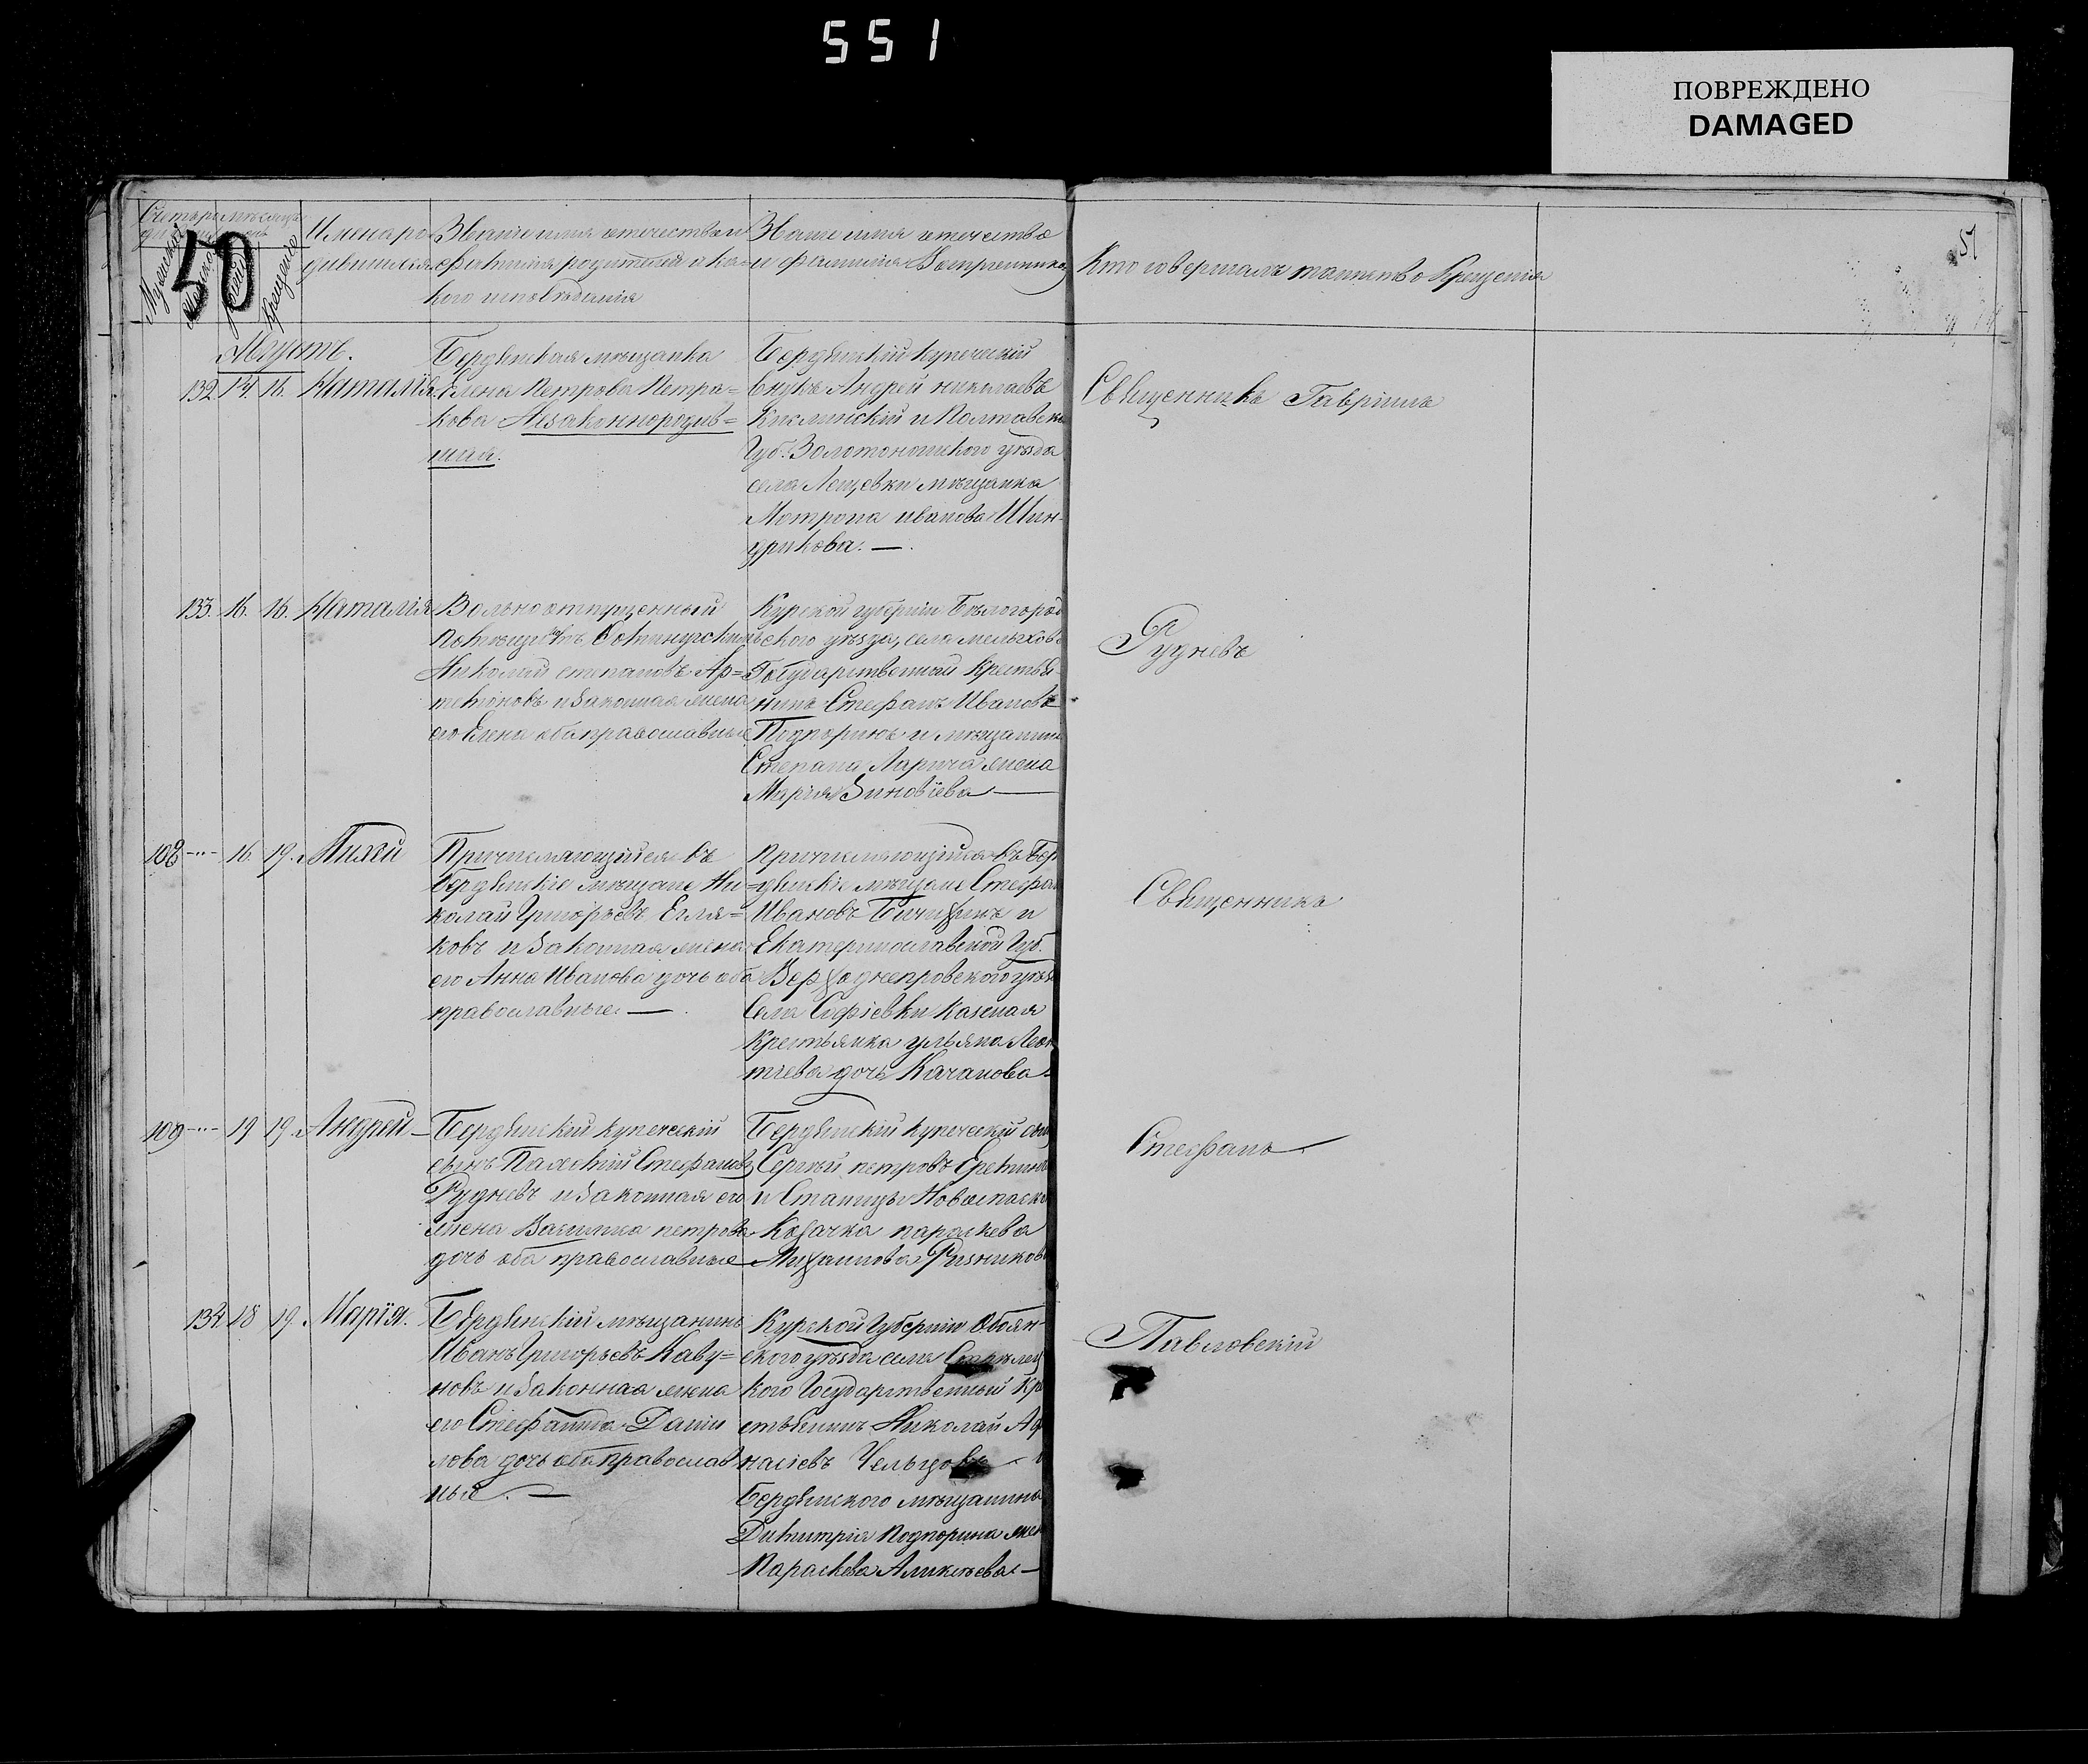 551
ПОВРЕЖДЕНО
DAMAGED
50
51
Имена ро
дившихся
Званіе имя отечество и
фамилія родителей и ка=
кого исповѣданія
Званіе имя отечество
и фамилія Воспреемнико
Кто совершалъ таинство Крещенія
Августъ.
132. 14. 16. Наталія
Бердянская мѣщанка
Елена Петрова Петра=
кова Незаконнорожд=
Бердянскій купеческій
внукъ Андрей николаевъ
Кислинскій и Полтавско
Губ. Золотоношского уѣзда
села мѣщанка
Мотрона иванова Шин-
дрикова. —.
Священникъ Гавріилъ
133. 16. 16. Наталія
Вольноотпущенный
Николай степановъ Ар=
и законная жена
его Елена оба православные
Курской губерніи Бѣлогород
ского уѣзда, села мелѣхов
Государственный Крестья
нинъ Стефанъ Ивановъ
Подпоринъ и мѣщанина
Степана Ларича жена
Марія Зиновіева —
Рудневъ
108 -..- 16. 19. Михей
Причисляющійся въ
бердянскіе мѣщане Ни=
колай Григорьевъ
ковъ и законная жена
его Анна Иванова дочь оба
православные. —.
Причисляющійся въ Бер
дянскіе мѣщане Стефан
Ивановъ и
Екатеринославской Губ.
Верходнепровского уѣз
Села Софіевки Казеная
Крестьянка ульяна Леон
тіева дочь Качанова
Священникъ
109 -..- 19 19. Андрей
Бердянскій купеческій
сынъ Пахомій Стефановъ
Рудневъ и законная его
жена Василиса петрова
дочь оба православные
Бердянскій купеческій сын
Сергѣй петровъ Еремин
и Станицы Новоспаско
Козачка параскева
Михаилова Ризников
Стефанъ
134. 18 19. Марія.
Бердянскій мѣщанинъ
Иванъ Григорьевъ Каву=
новъ и законная жена
его Стефанида Дани
лова дочь оба православ
ные. —
Курской Губерніи Обоян-
ского уѣзда села
кого Государственный Кр
стьянинъ Николай Аф
насіевъ Чельцовъ
Бердянского мѣщанина
Димитрія Подпорина жен
Параскева Аликсѣева. —
Павловскій